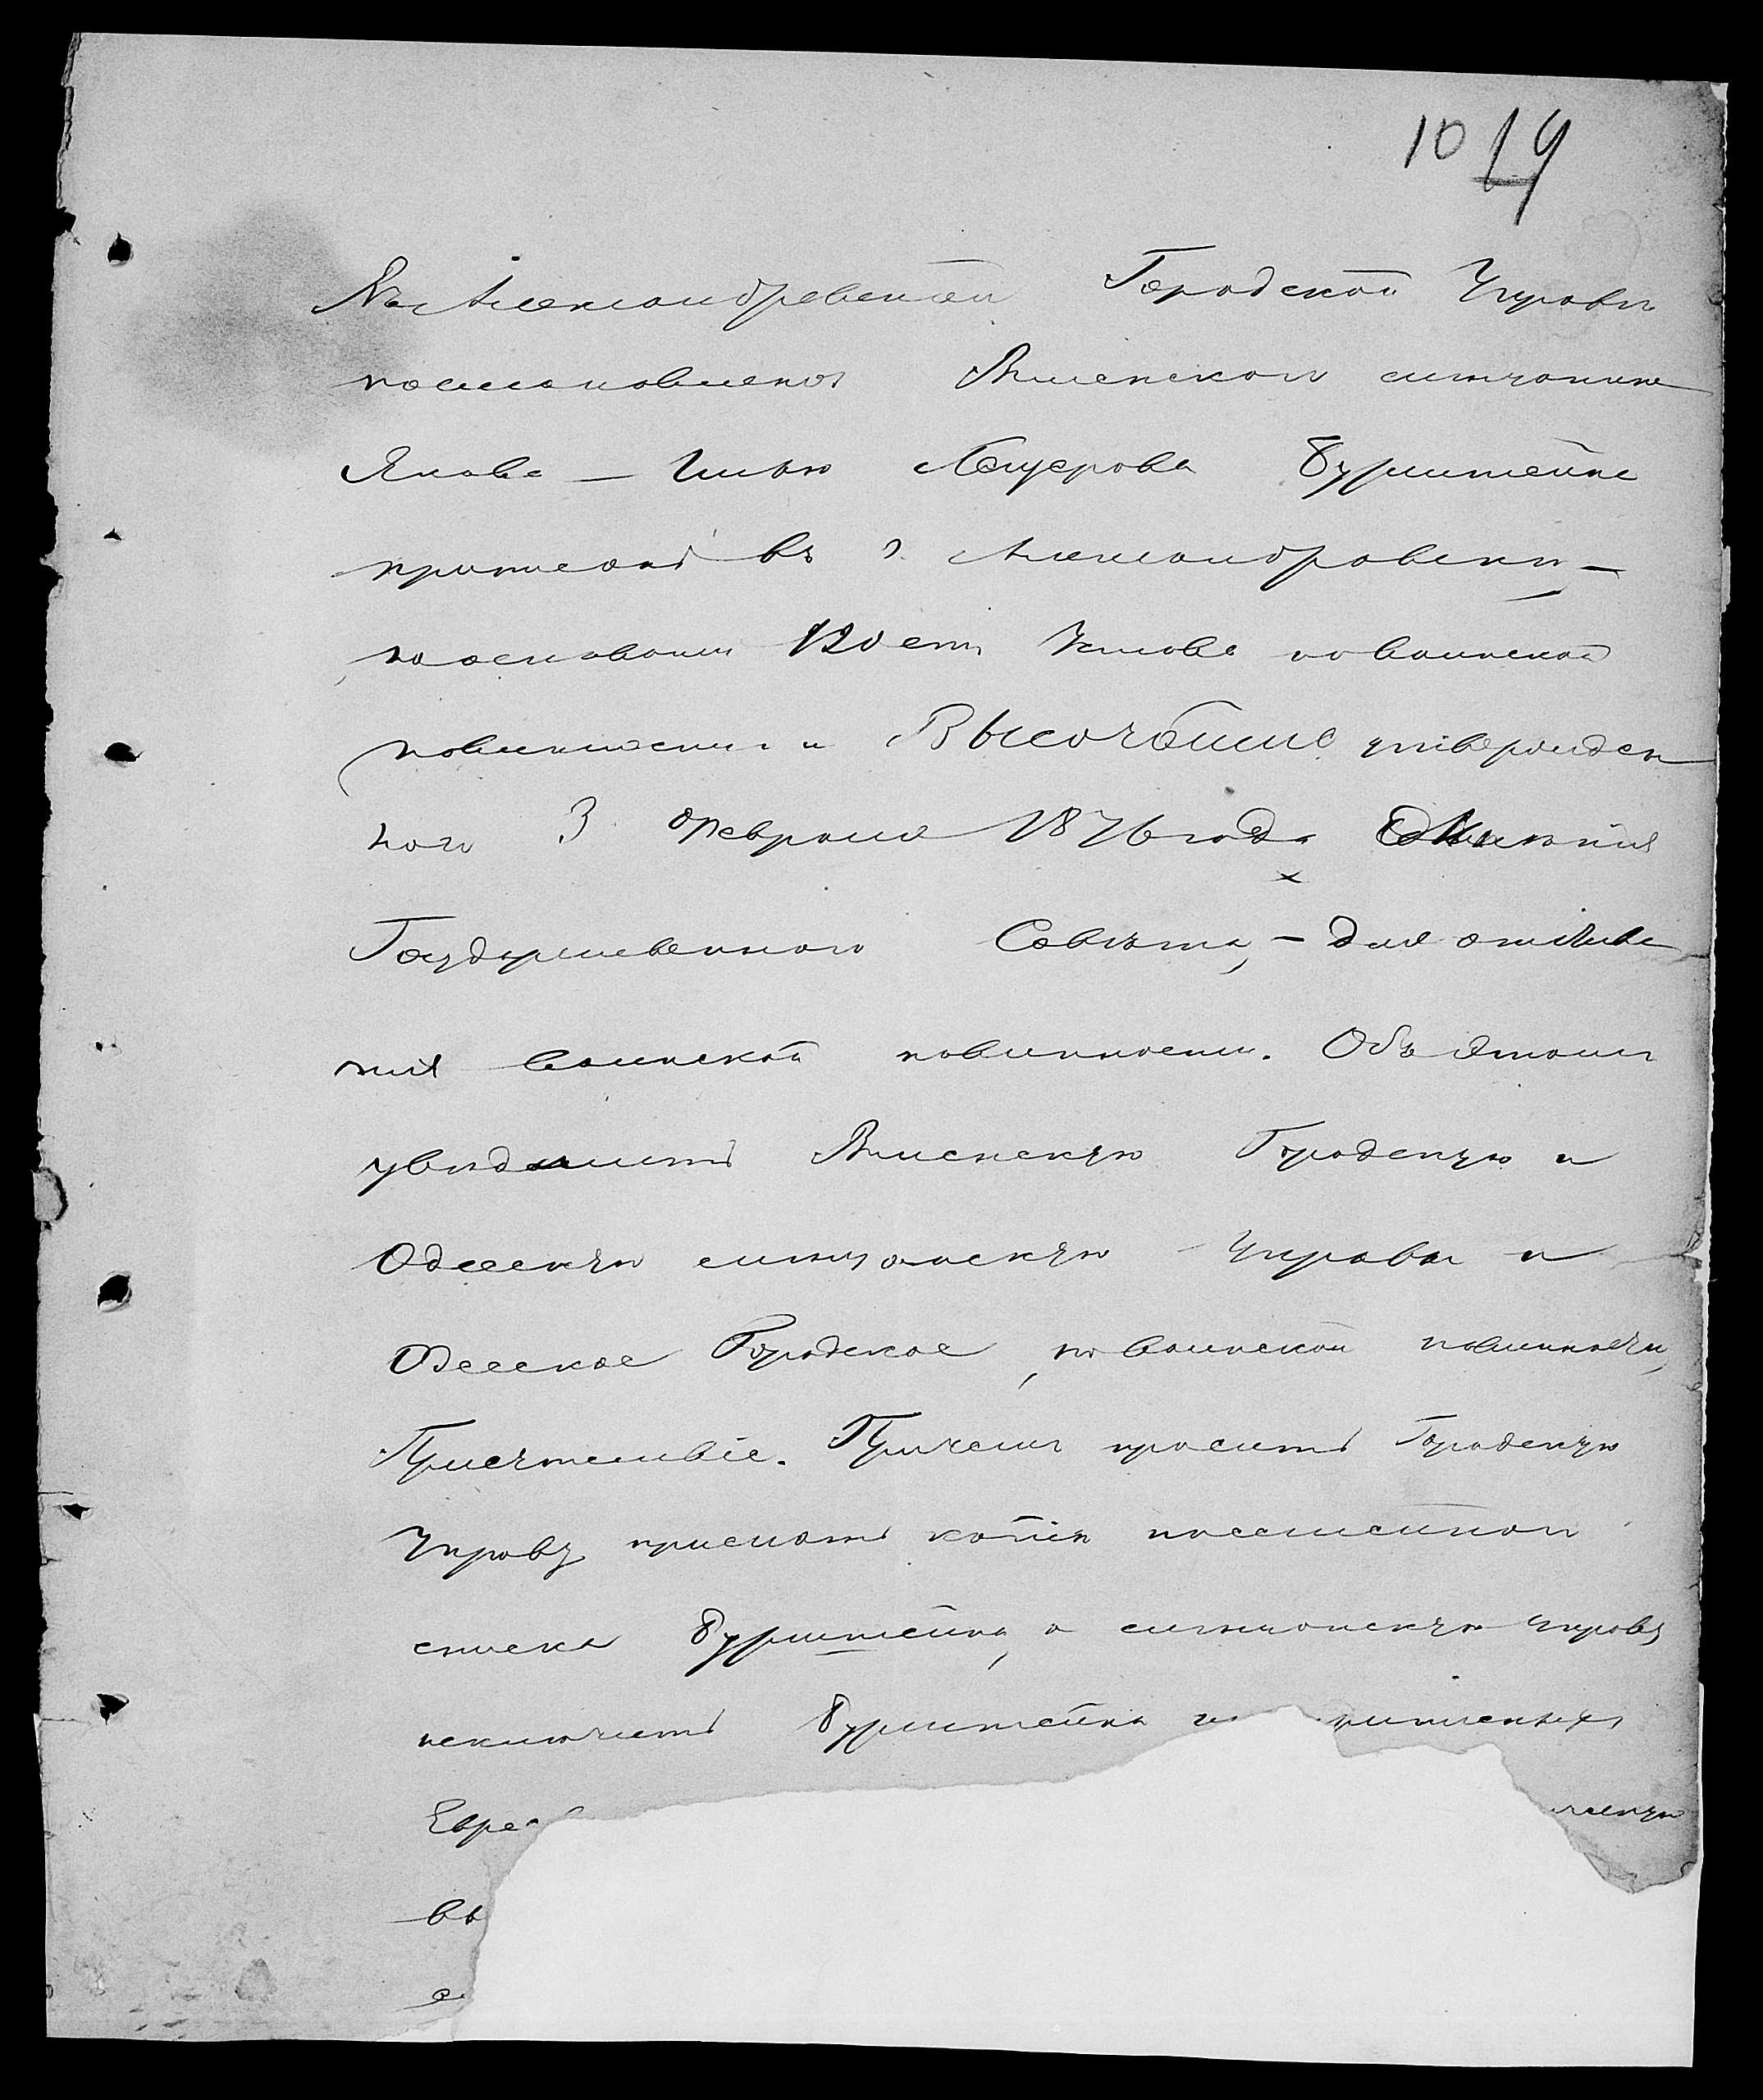 10 19
Въ Александровской Городской Управы
постановлено Виленского мѣщанина
Якова – Илью Лейзерова Бурштейна
приписать въ г. Александровскъ, –
на основаніи 120 ст. Устава о воинской
повинности и Высочайше утвержден
наго 3 Февраля 1876 года Мнѣнія
Государственнаго Совѣта, – для отбыва
нія воинской повинности. Объ этомъ
увѣдомить Виленскую Городскую и
Одесскую мѣщанскую Управы и
Одесское Городское, по воинской повинности,
Присутствіе. При чемъ просить Городскую
Управу прислать копію посемейнаго
списка Бурштейна, а мѣщанскую Управу
исключить Бурштейна
Евре
въ